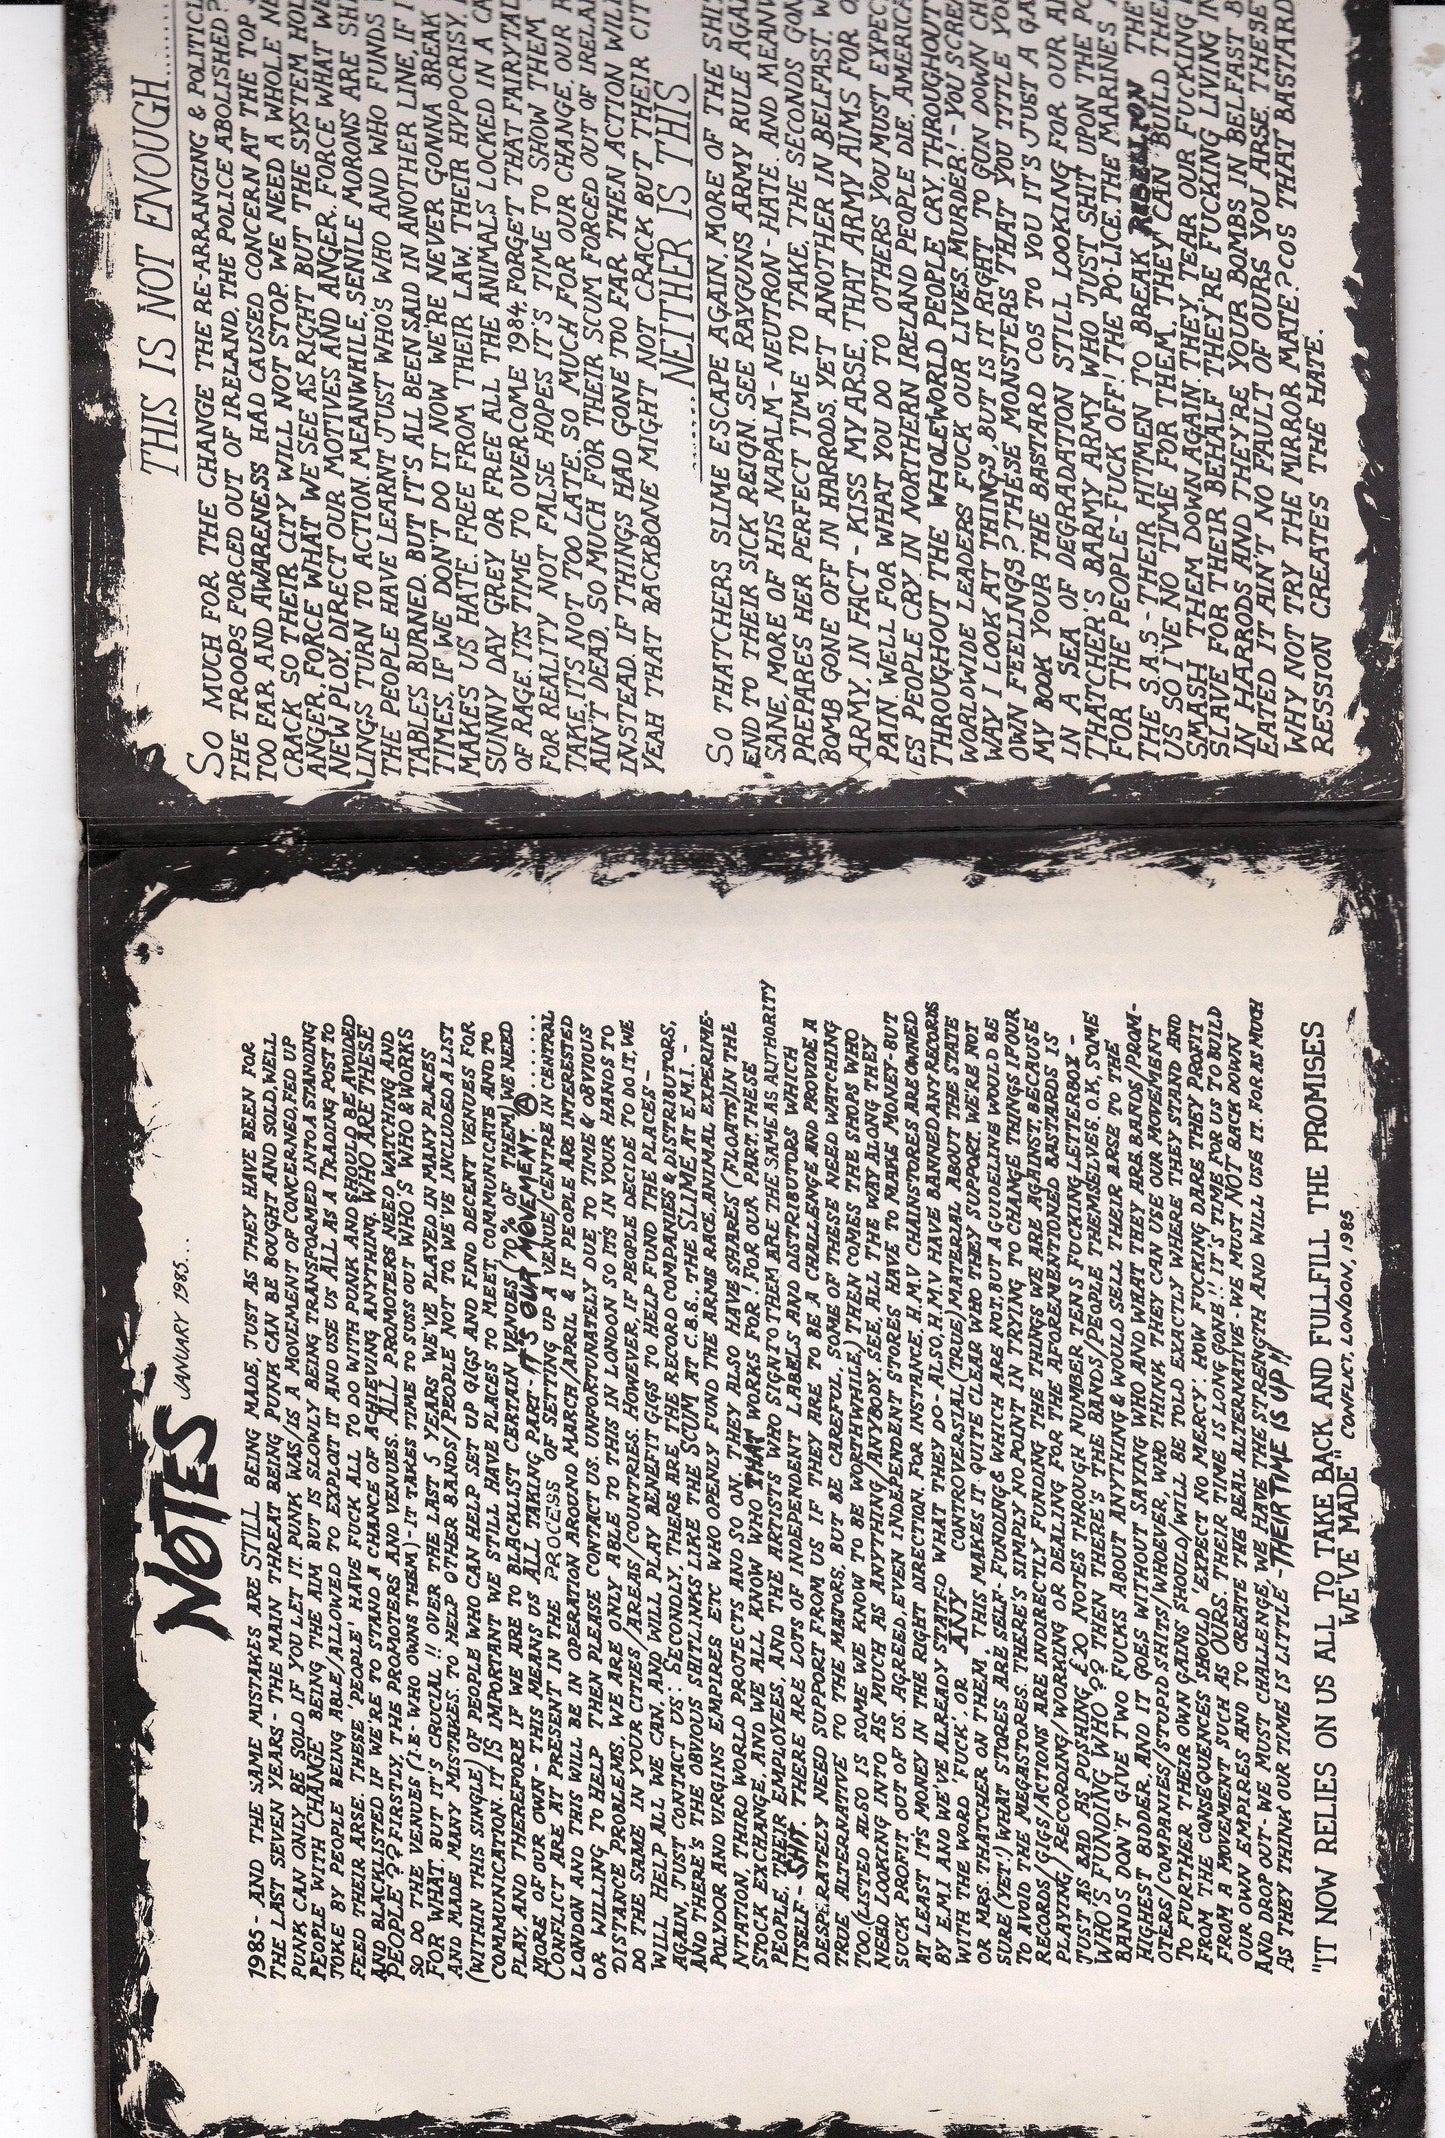 NOTES JANUARY 1985...
1985 - AND THE SAME MISTAKES ARE STILL BEING MADE, JUST AS THEY HAVE BEEN FOR
THE LAST SEVEN YEARS - THE MAIN THREAT BEING PUNK CAN BE BOUGHT AND SOLD, WELL
PUNK CAN ONLY BE SOLD IF YOU LET IT. PUNK WAS/IS A MOVEMENT OF CONCERNED, FED UP
PEOPLE WITH CHANGE BEING THE AIM BUT IS SLOWLY BEING TRANSFORMED INTO A STANDING
JOKE BY PEOPLE BEING ABLE/ALLOWED TO EXPLOIT IT AND USE US ALL AS A TRADING POST TO
FEED THEIR ARSE. THESE 'PEOPLE' HAVE FUCK ALL TO DO WITH PUNK AND SHOULD BE AVOIDED
AND BLACKLISTED IF WE'RE TO STAND A CHANCE OF ACHIEVING ANYTHING. WHO ARE THESE
PEOPLE?? FIRSTLY, THE PROMOTERS AND VENUES. ALL PROMOTERS NEED WATCHING AND
SO DO THE VENUES (I·E· WHO OWNS THEM) - IT TAKES TIME TO SUSS OUT WHO'S WHO & WORKS
FOR WHAT. BUT IT'S CRUCIAL!! OVER THE LAST 5 YEARS WE'VE PLAYED IN MANY PLACES
AND MADE MANY MISTAKES. TO HELP OTHER BANDS/PEOPLE NOT TO, WE'VE INCLUDED A LIST
(WITHIN THIS SINGLE) OF PEOPLE WHO CAN HELP SET UP GIGS AND FIND DECENT VENUES FOR
COMMUNICATION. IT IS IMPORTANT WE STILL HAVE PLACES TO MEET, COMMUNICATE AND TO
PLAY, AND THEREFORE IF WE ARE TO BLACKLIST CERTAIN VENUES (70% OF THEM) WE NEED
MORE OF OUR OWN - THIS MEANS US ALL TAKING PART· IT'S OUR MOVEMENT. Ⓐ ......
CONFLICT ARE AT PRESENT IN THE PROCESS OF SETTING UP A VENUE/CENTRE IN CENTRAL
LONDON AND THIS WILL BE IN OPERATION AROUND MARCH/APRIL & IF PEOPLE ARE INTERESTED
OR WILLING TO HELP THEN PLEASE CONTACT US. UNFORTUNATELY DUE TO TIME & OBVIOUS
DISTANCE PROBLEMS, WE ARE ONLY ABLE TO THIS IN LONDON SO ITS IN YOUR HANDS TO
DO THE SAME IN YOUR CITIES/AREAS/COUNTRIES. HOWEVER, IF PEOPLE DECIDE TO DO IT, WE
WILL HELP ALL WE CAN, AND WILL PLAY BENEFIT GIGS TO HELP FUND THE PLACES -
AGAIN, JUST CONTACT US. SECONDLY, THERE ARE THE RECORD COMPANIES & DISTRIBUTORS,
AND THERE'S THE OBVIOUS SHITLINKS LIKE THE SCUM AT C.B.S., THE SLIME AT E.M.I. -
POLYDOR AND VIRGINS EMPIRES ETC WHO OPENLY FUND THE ARMS RACE, ANIMAL EXPERIME-
NTATION, THIRD WORLD PROTECTS AND SO ON. THEY ALSO HAVE SHARES (FLOATS) IN THE
STOCK EXCHANGE, AND WE ALL KNOW WHO THAT WORKS FOR! FOR OUR PART, THESE
PEOPLE, THEIR EMPLOYEES, AND THE ARTISTS WHO SIGN TO THEM ARE THE SAME AS AUTHORITY
ITSELF - SHIT. THERE ARE LOTS OF INDEPENDENT LABELS AND DISTRIBUTORS WHICH
DESPERATELY NEED SUPPORT FROM US IF THEY ARE TO BE A CHALLENGE AND PROVIDE A
TRUE ALTERNATIVE TO THE MAJORS, BUT BE CAREFUL, SOME OF THESE NEED WATCHING
TOO, (LISTED ALSO IS SOME WE KNOW TO BE WORTHWHILE,) THEN COMES THE SHOPS WHO
NEED LOOKING INTO AS MUCH AS ANYTHING/ANYBODY. SEE, ALL THE WAY ALONG THEY
SUCK PROFIT OUT OF US. AGREED, EVEN INDEPENDENT STORES HAVE TO MAKE MONEY - BUT
AT LEAST ITS MONEY IN THE RIGHT DIRECTION. FOR INSTANCE, H.M.V CHAINSTORES ARE OWNED
BY E.M.I AND WE'VE ALREADY STATED WHAT THEY DO - ALSO, H.M.V HAVE BANNED ANY RECORDS
WITH THE WORD 'FUCK'. OR ANY CONTROVERSIAL (TRUE) MATERIAL ABOUT THE STATE
OR MRS. THATCHER ON THEM, THIS MAKES IT QUITE CLEAR WHO THEY SUPPORT. WE'RE NOT
SURE (YET!) WHAT STORES ARE SELF-FUNDING & WHICH ARE NOT, BUT A GUIDELINE WOULD BE
TO AVOID THE MEGASTORES. THERE'S SIMPLY NO POINT IN TRYING TO CHANGE THINGS IF OUR
RECORDS/GIGS/ACTIONS ARE INDIRECTLY FUNDING THE THINGS WE ARE AGAINST, BECAUSE
PLAYING/RECORDING/WORKING OR DEALING FOR THE AFOREMENTIONED BASTARDS IS
JUST AS BAD AS PUSHING £20 NOTES THROUGH NUMBER TENS FUCKING LETTERBOX -
WHO'S FUNDING WHO?? THEN THERE'S THE BANDS/PEOPLE THEMSELVES, O.K, SOME
BANDS DON'T GIVE TWO FUCKS ABOUT ANYTHING & WOULD SELL THEIR ARSE TO THE
HIGHEST BIDDER, AND IT GOES WITHOUT SAYING WHO AND WHAT THEY ARE. BANDS/PROM-
OTERS/COMPANIES/STUPID SHITS/WHOEVER, WHO THINK THEY CAN USE OUR MOVEMENT
TO FURTHER THEIR OWN GAINS SHOULD/WILL BE TOLD EXACTLY WHERE THEY STAND AND
FROM THE CONSEQUENCES SHOULD 'EXPECT NO MERCY'. HOW FUCKING DARE THEY PROFIT
FROM A MOVEMENT SUCH AS OURS. THEIR TIME IS LONG GONE!! IT'S TIME FOR US TO BUILD
OUR OWN EMPIRES AND TO CREATE THE REAL ALTERNATIVE - WE MUST NOT BACK DOWN
AND DROP OUT - WE MUST CHALLENGE, WE HAVE THE STRENGTH AND WILL USE IT. FOR AS MUCH
AS THEY THINK OUR TIME IS LITTLE - THEIR TIME IS UP!!
"IT NOW RELIES ON US ALL TO TAKE BACK AND FULLFILL THE PROMISES
WE'VE MADE" CONFLICT, LONDON, 1985
THIS IS NOT ENOUGH.........
SO MUCH FOR THE CHANGE THE RE-ARRANGING & POLITICI
THE TROOPS FORCED OUT OF IRELAND, THE POLICE ABOLISHED?
TOO FAR AND AWARENESS HAD CAUSED CONCERN AT THE TOP
CRACK SO THEIR CITY WILL NOT STOP. WE NEED A WHOLE NE
ANGER, FORCE WHAT WE SEE AS RIGHT BUT THE SYSTEM HOL
NEW PLOY, DIRECT OUR MOTIVES AND ANGER, FORCE WHAT WE
LINGS TURN TO ACTION. MEANWHILE, SENILE MORONS ARE SHA
THE PEOPLE HAVE LEARNT JUST WHO'S WHO AND WHO FUNDS
TABLES BURNED. BUT IT'S ALL BEEN SAID IN ANOTHER LINE, IF I
TIMES, IF WE DON'T DO IT NOW WE'RE NEVER GONNA BREAK
MAKES US HATE. FREE FROM THEIR LAW, THEIR HYPOCRISY,
SUNNY DAY GREY OR FREE ALL THE ANIMALS LOCKED IN A CA
OF RAGE. ITS TIME TO OVERCOME 1984, FORGET THAT FAIRYTAL
FOR REALITY NOT FALSE HOPES IT'S TIME TO SHOW THEM
TAKE, IT'S NOT TOO LATE. SO MUCH FOR OUR CHANGE, OUR R
AIN'T DEAD, SO MUCH FOR THEIR SCUM FORCED OUT OF IRELAN
INSTEAD. IF THINGS HAD GONE TOO FAR THEN ACTION WILL
YEAH THAT BACKBONE MIGHT NOT CRACK BUT THEIR CIT
.........NEITHER IS THIS
SO THATCHERS SLIME ESCAPE AGAIN, MORE OF THE SHI
END TO THEIR SICK REIGN. SEE RAYGUNS ARMY RULE AGAI
SANE, MORE OF HIS NAPALM - NEUTRON - HATE. AND MEANW
PREPARES HER PERFECT TIME TO TAKE, THE SECONDS GON
BOMB GONE OFF IN HARRODS, YET ANOTHER IN BELFAST. W
ARMY, IN FACT - KISS MY ARSE, THAT ARMY AIMS FOR O
PAIN, WELL FOR WHAT YOU DO TO OTHERS YOU MUST EXPECT
ES PEOPLE CRY IN NORTHERN IRELAND PEOPLE DIE, AMERICA
THROUGHOUT THE WHOLEWORLD PEOPLE CRY, THROUGHOUT
WORLDWIDE LEADERS FUCK OUR LIVES. MURDER! - YOU SCREA
WAY I LOOK AT THINGS, BUT IS IT RIGHT TO GUN DOWN CH
OWN FEELINGS? THESE MONSTERS THAT YOU TITLE YO
MY BOOK YOUR THE BASTARD COS TO YOU IT'S JUST A GA
IN A SEA OF DEGRADATION STILL LOOKING FOR OUR AI
THATCHER'S BARMY ARMY WHO JUST SHIT UPON THE PO
FOR THE PEOPLE - FUCK OFF! THE PO·LICE, THE MARINES A
THE S.A.S - THEIR HITMEN TO BREAK REBELLION THE
US SO I'VE NO TIME FOR THEM, THEY CAN BUILD THE
SMASH THEM DOWN AGAIN. THEY TEAR OUR FUCKING
SLAVE FOR THEIR BEHALF THEY'RE FUCKING LIVING IN
IN HARRODS AND THEY'RE YOUR BOMBS IN BELFAST B
EATED IT AIN'T NO FAULT OF OURS, YOU ARSE. THESE
WHY NOT TRY THE MIRROR MATE? COS THAT BASTARD
RESSION CREATES THE HATE.